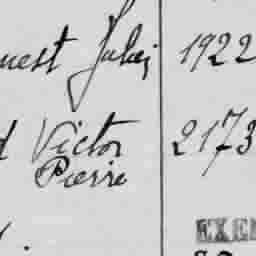 nest Jules 1922
d Victor 2173
Pierre
EXE